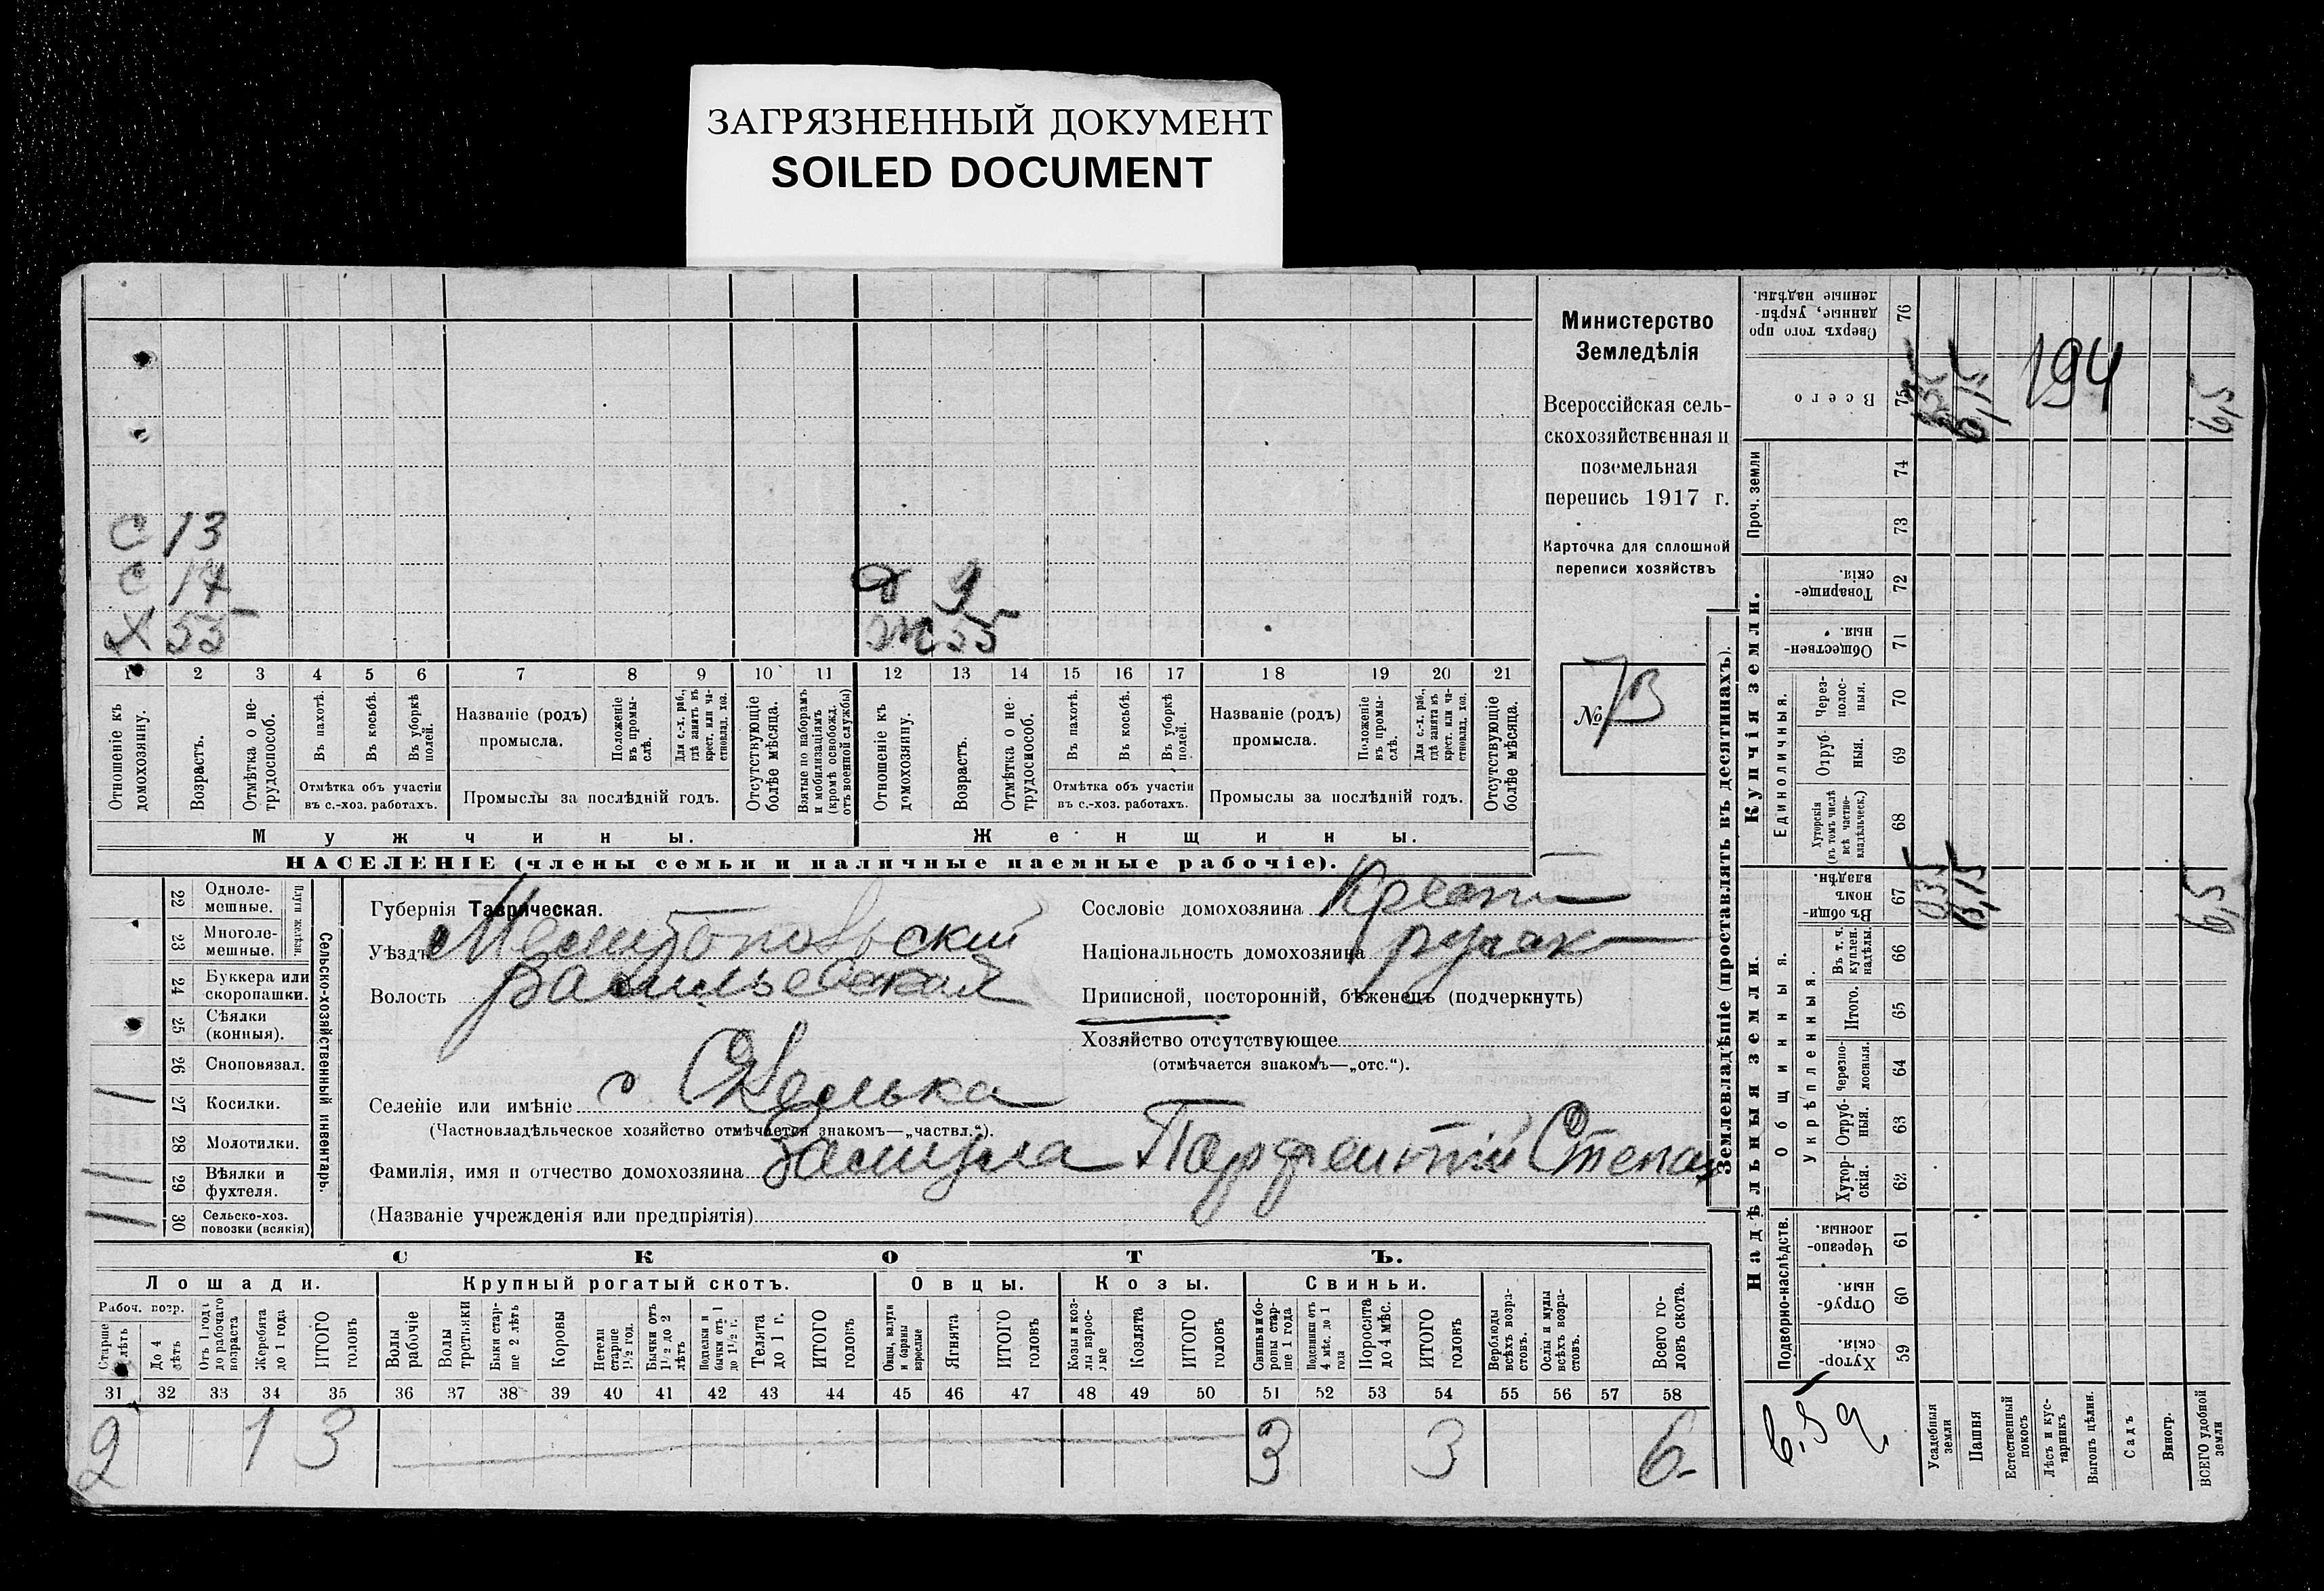 ЗАГРЯЗНЕННЫЙ ДОКУМЕНТ
SOILED DOCUMENT
Министерство
Земледѣлія
Всероссійская сель-
скохозяйственная и
поземельная
перепись 1917 г.
Карточка для сплошной
переписи хозяйствъ
№ 73
С 13
С 14
Х 55
д 9
ж 55
1 2 3 4 5 6 7 8 9 10 11 12 13 14 15 16 17 18 19 20 21
Отношеніе къ домохозяину.
Возрастъ.
Отмѣтка о не-трудоспособ.
Въ пахотѣ.
Въ косьбѣ.
Въ уборкѣ полей.
Отмѣтка объ участіи
въ с.-хоз. работахъ.
Названіе (родъ)
промысла.
Положеніе въ промы-слѣ.
Для с.-х. раб., гдѣ занятъ въ крест. или ча-стновлад. хоз.
Промыслы за послѣдній годъ.
Отсутствующіе болѣе мѣсяца.
Взятые по наборамъ и мобилизаціямъ (кромѣ освобожд. отъ военной службы)
Отношеніе къ домохозяину.
Возрастъ.
Отмѣтка о не-трудоспособ.
Въ пахотѣ.
Въ косьбѣ.
Въ уборкѣ полей.
Отмѣтка объ участіи
въ с.-хоз. работахъ.
Названіе (родъ)
промысла.
Положеніе въ промы-слѣ.
Для с.-х. раб., гдѣ занята въ крест. или ча-стновлад. хоз.
Промыслы за послѣдній годъ.
Отсутствующіе болѣе мѣсяца.
Мужчины.
Женщины.
НАСЕЛЕНІЕ (члены семьи и наличные наемные рабочіе).
Сельско-хозяйственный инвентарь.
Плуги желѣзн.
22 Одноле-мешные.
23 Многоле-мешные.
24 Буккера или скоропашки.
25 Сѣялки (конныя).
26 Сноповязал.
27 Косилки.
28 Молотилки.
29 Вѣялки и фухтеля.
30 Сельско-хоз. повозки (всякія)
Губернія Таврическая.
Уѣздъ Мелитопольскій
Волость Васильевская
Селеніе или имѣніе с Скелька
(Частновладѣльческое хозяйство отмѣчается знакомъ—„частвл.“).
Фамилія, имя и отчество домохозяина Замула Парфентій Степан
(Названіе учрежденія или предпріятія)
Сословіе домохозяина Крест
Національность домохозяина
Приписной, посторонній, бѣженецъ (подчеркнуть)
Хозяйство отсутствующее
(отмѣчается знакомъ—„отс.“).
СКОТЪ.
Лошади.
Крупный рогатый скотъ.
Овцы.
Козы.
Свиньи.
Рабоч. возр.
Старше лѣтъ
До 4 лѣтъ
Отъ 1 года до рабочаго возраста
Жеребята до 1 года
ИТОГО головъ
Волы рабочіе
Волы третьяки
Быки стар-ше 2 лѣтъ
Коровы
Нетели старше 1½ год.
Бычки отъ 1½ до 2 лѣтъ
Подтелки и бычки отъ 1 до 1½ г.
Телята до 1 г.
ИТОГО головъ
Овцы, валухи и бараны взрослые
Ягнята
ИТОГО головъ
Козы и коз-лы взрос-лые
Козлята
ИТОГО головъ
Свиньи и бо-ровы стар-ше 1 года
Подсвинки отъ 4 мѣс. до 1 года
Поросята до 4 мѣс.
ИТОГО головъ
Верблюды всѣхъ возра-стовъ.
Ослы и мулы всѣхъ возра-стовъ.
Всего го-ловъ скота.
31 32 33 34 35 36 37 38 39 40 41 42 43 44 45 46 47 48 49 50 51 52 53 54 55 56 57 58
2 1 3 3 3 6
Землевладѣніе (проставлять въ десятинахъ).
76 Сверхъ того про данные, укрѣп-ленные надѣлы.
75 Всего
6,15
194
6,5
Проч. земли
74
73
Купчія земли.
72 Товарище-скія.
71 Обществен-ныя.
Единоличныя.
70 Через-полос-ныя.
69 Отруб-ныя.
68 Хуторскія (въ томъ числѣ всѣ частно-владѣльческ.)
Надѣльныя земли.
Общинныя.
67 Въ общи-номъ владѣн.
035
6,15
6,5
Укрѣпленныя.
66 Въ т. ч. куплен. надѣлы.
65 Итого.
64 Черезпо-лосныя.
63 Отруб-ныя.
62 Хутор-скія.
Подворно-наслѣдств.
61 Черезпо-лосныя
60 Отруб-ныя
59 Хутор-скія
Усадебныя земли
Пашня
Естественный покосъ
Лѣсъ и кус-тарникъ
Выгонъ цѣлин.
Садъ
Виногр.
ВСЕГО удобной земли